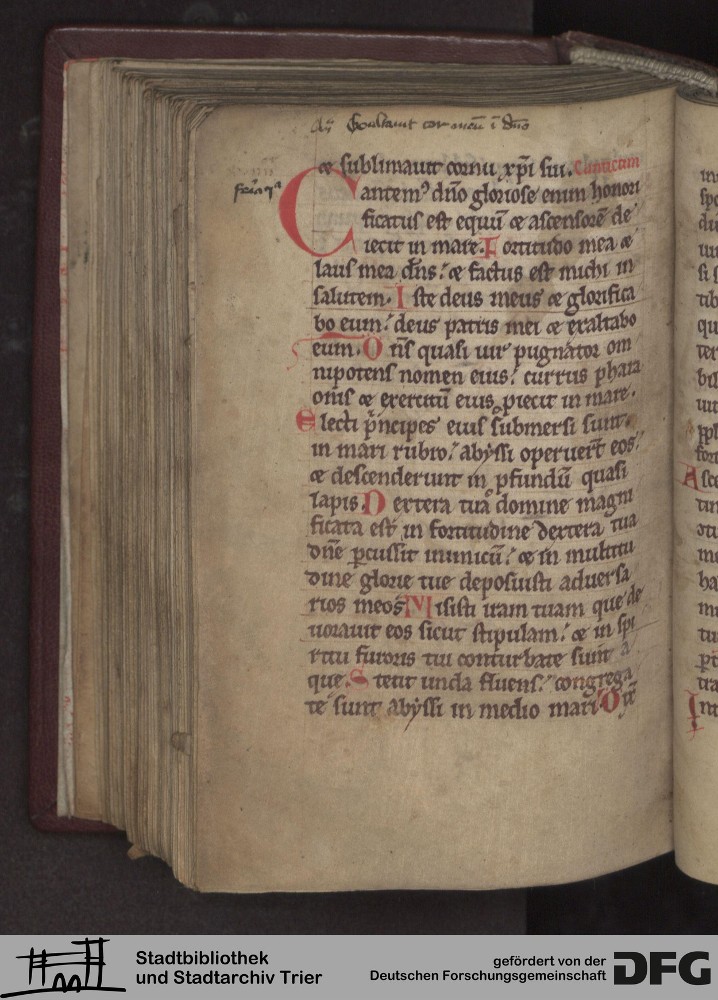 An̄ Exultauit cor meū ĩ dño
ꝛ sublimauit cornu xp̄i sui. Canticum
feria va
Cantemꝰ dño gloriose enim honori
ficatus est equū ꝛ ascensorē de
iecit in mare. Fortitudo mea ꝛ
laus mea dñs: ꝛ factus est michi in
salutem. Iste deus meus ꝛ glorifica
bo eum: deus patris mei ꝛ exaltabo
eum. Oñs quasi uir pugnator om
nipotens nomen eius: currus phara
onis ꝛ exercitū eius ꝓiecit in mare.
electi pͥncipes eius submersi sunt
in mari rubro: abyssi operuert̄ eos:
ꝛ descenderunt in ꝓfundū quasi
lapis. Dextera tua domine magni
ficata est in fortitudine dextera tua
dñe ꝑcussit inimicū: ꝛ in multitu
dine glorie tue deposuisti aduersa
rios meos Misisti iram tuam que de
uorauit eos sicut stipulam: ꝛ in spi
ritu furoris tui conturbate sunt a
que. Stetit unda fluens: congrega
te sunt abyssi in medio mari
Stadtbibliothek
und Stadtarchiv Trier
gefördert von der
Deutschen Forschungsgemeinschaft DFG